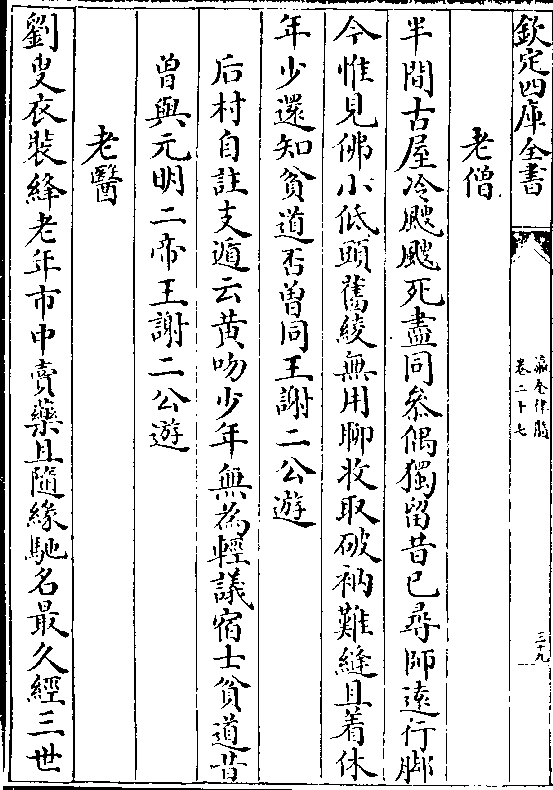 欽定四庫全書
瀛奎律髓
卷二十七
三十九
老僧
半間古屋冷颼颼死盡同叅偶獨留昔已尋師遠行脚
今惟見佛小低頭舊綾無用聊收取破衲難縫且着休
年少還知貧道否曽同王謝二公遊
后村自註支遁云黄吻少年無為輕議宿士貧道昔
曽與元明二帝王謝二公遊
老醫
劉叟衣裝絳老年市中賣藥且隨緣馳名最久經三世